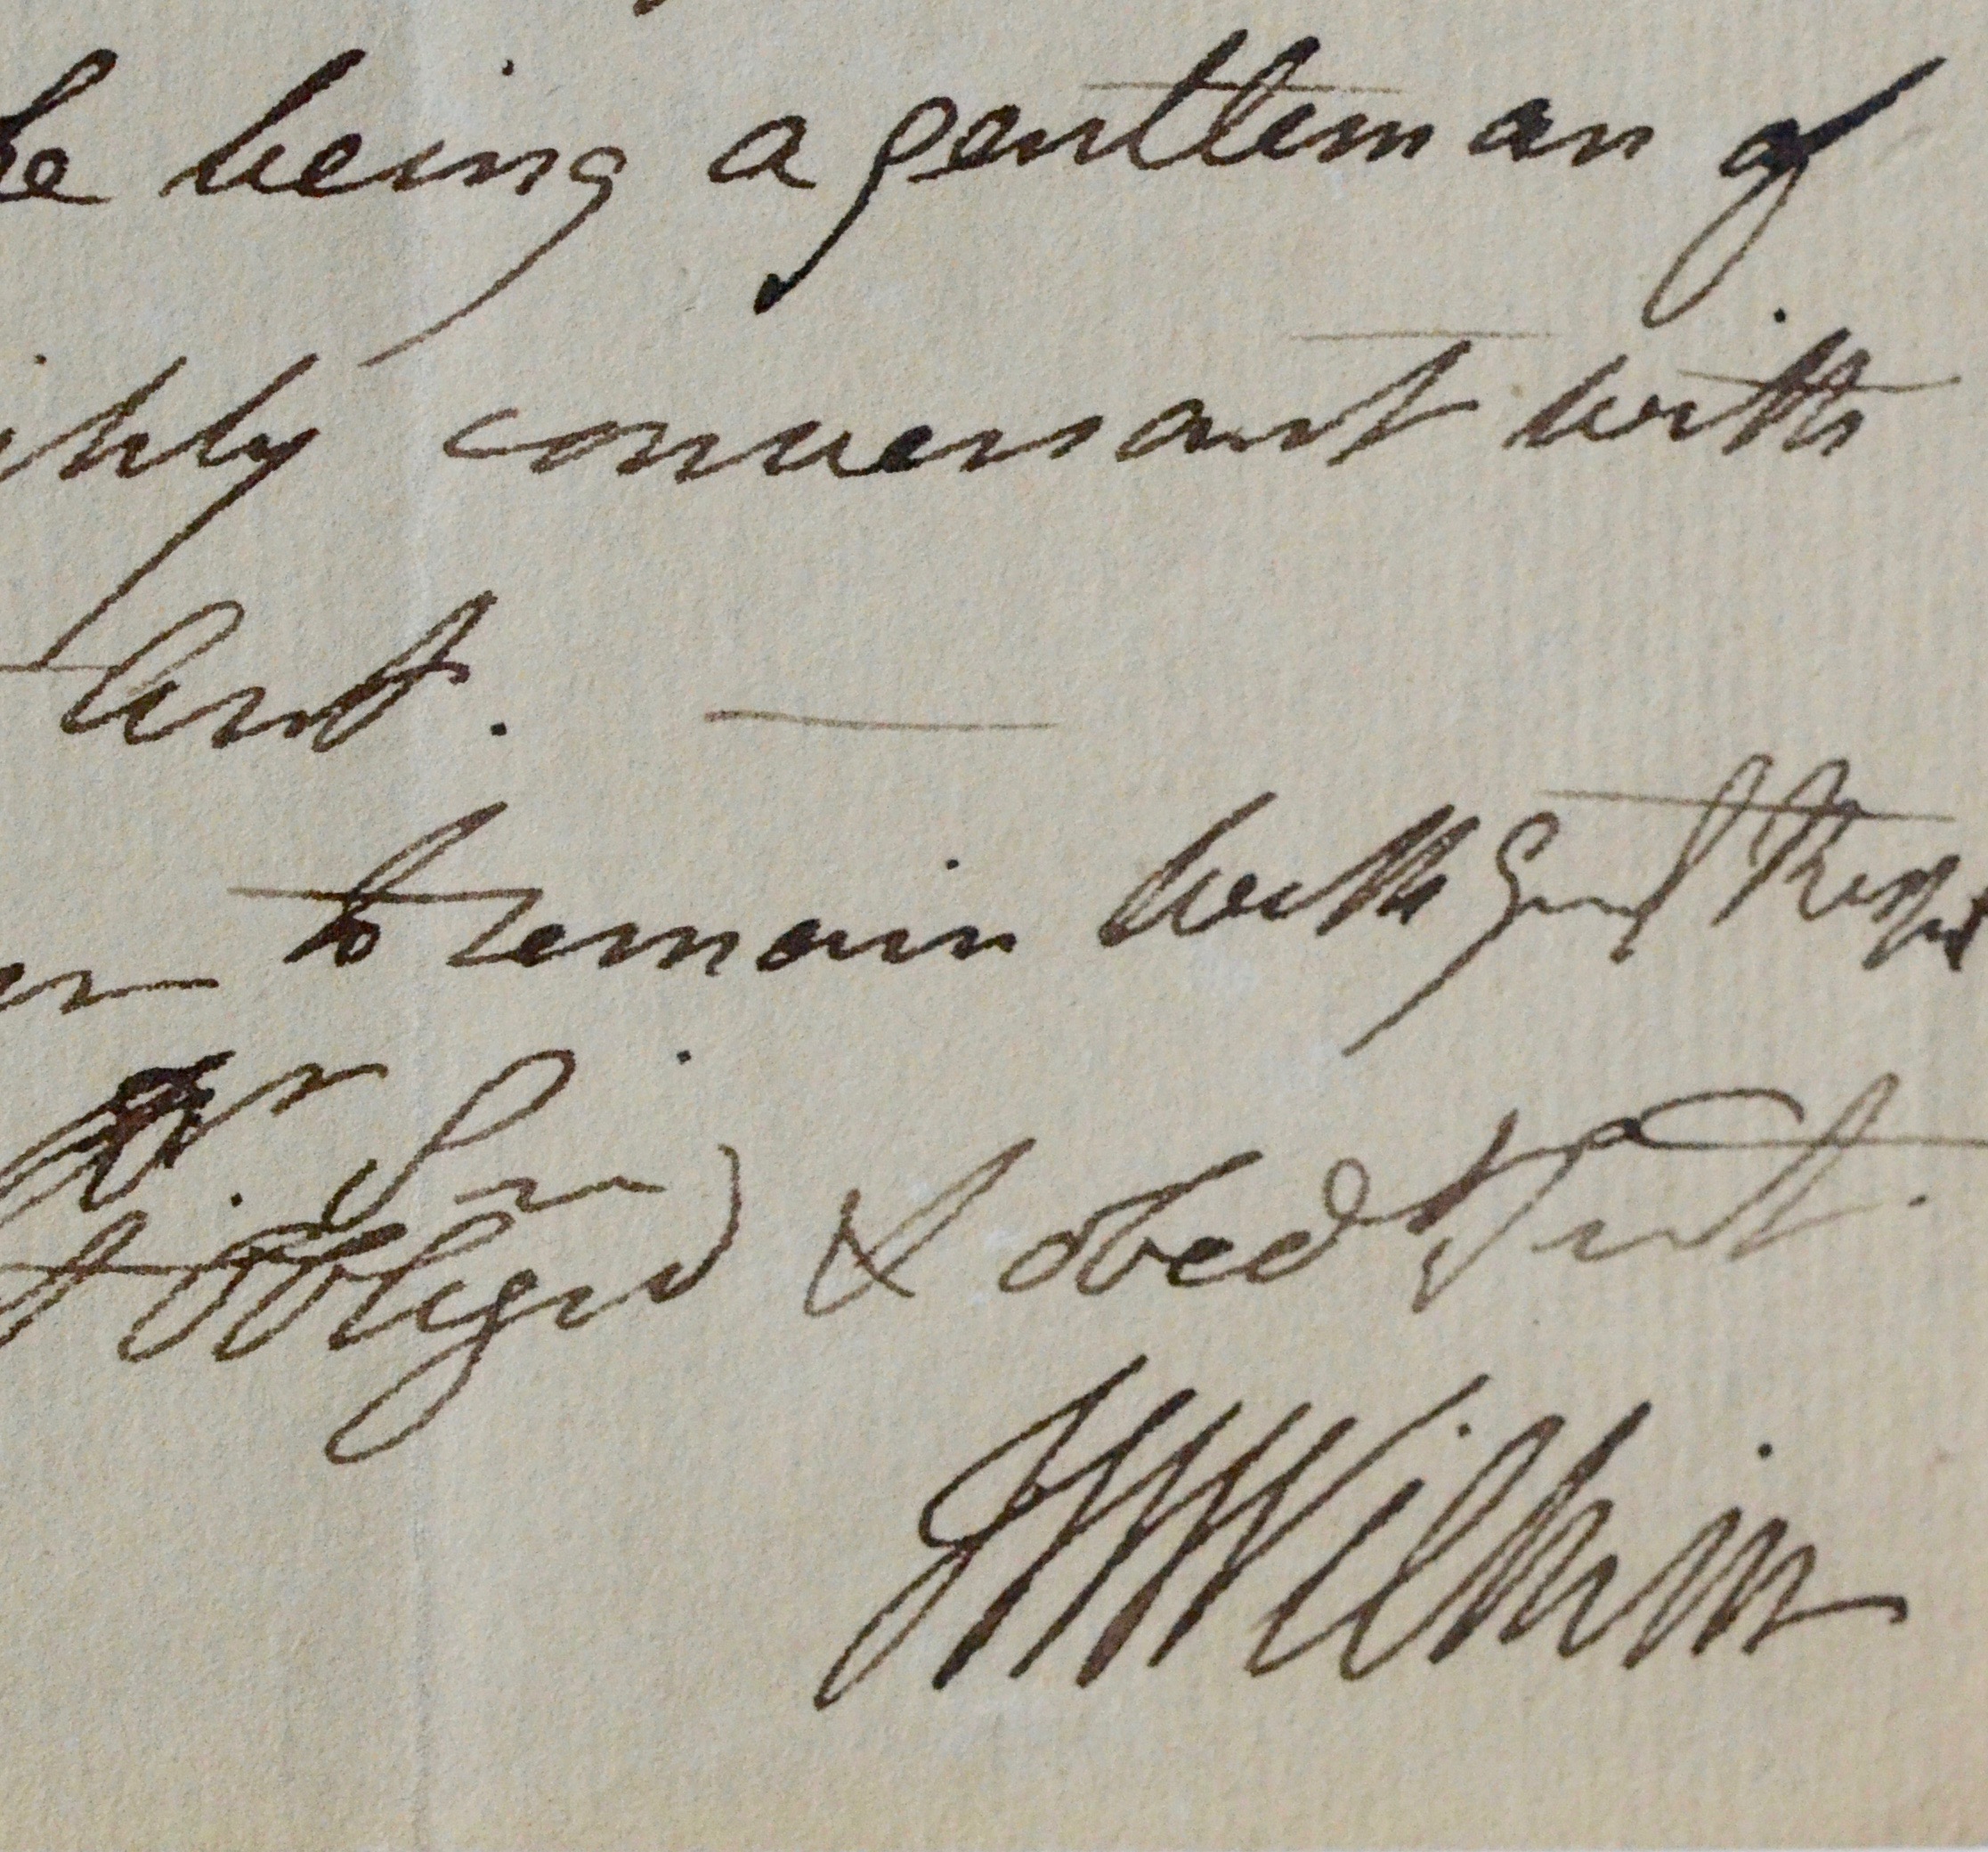 he being a gentleman of
ghly conversant with
Art. —
to remain with Great Respt
Dr. Sir
obliged & obedt Sert.
Wilkin